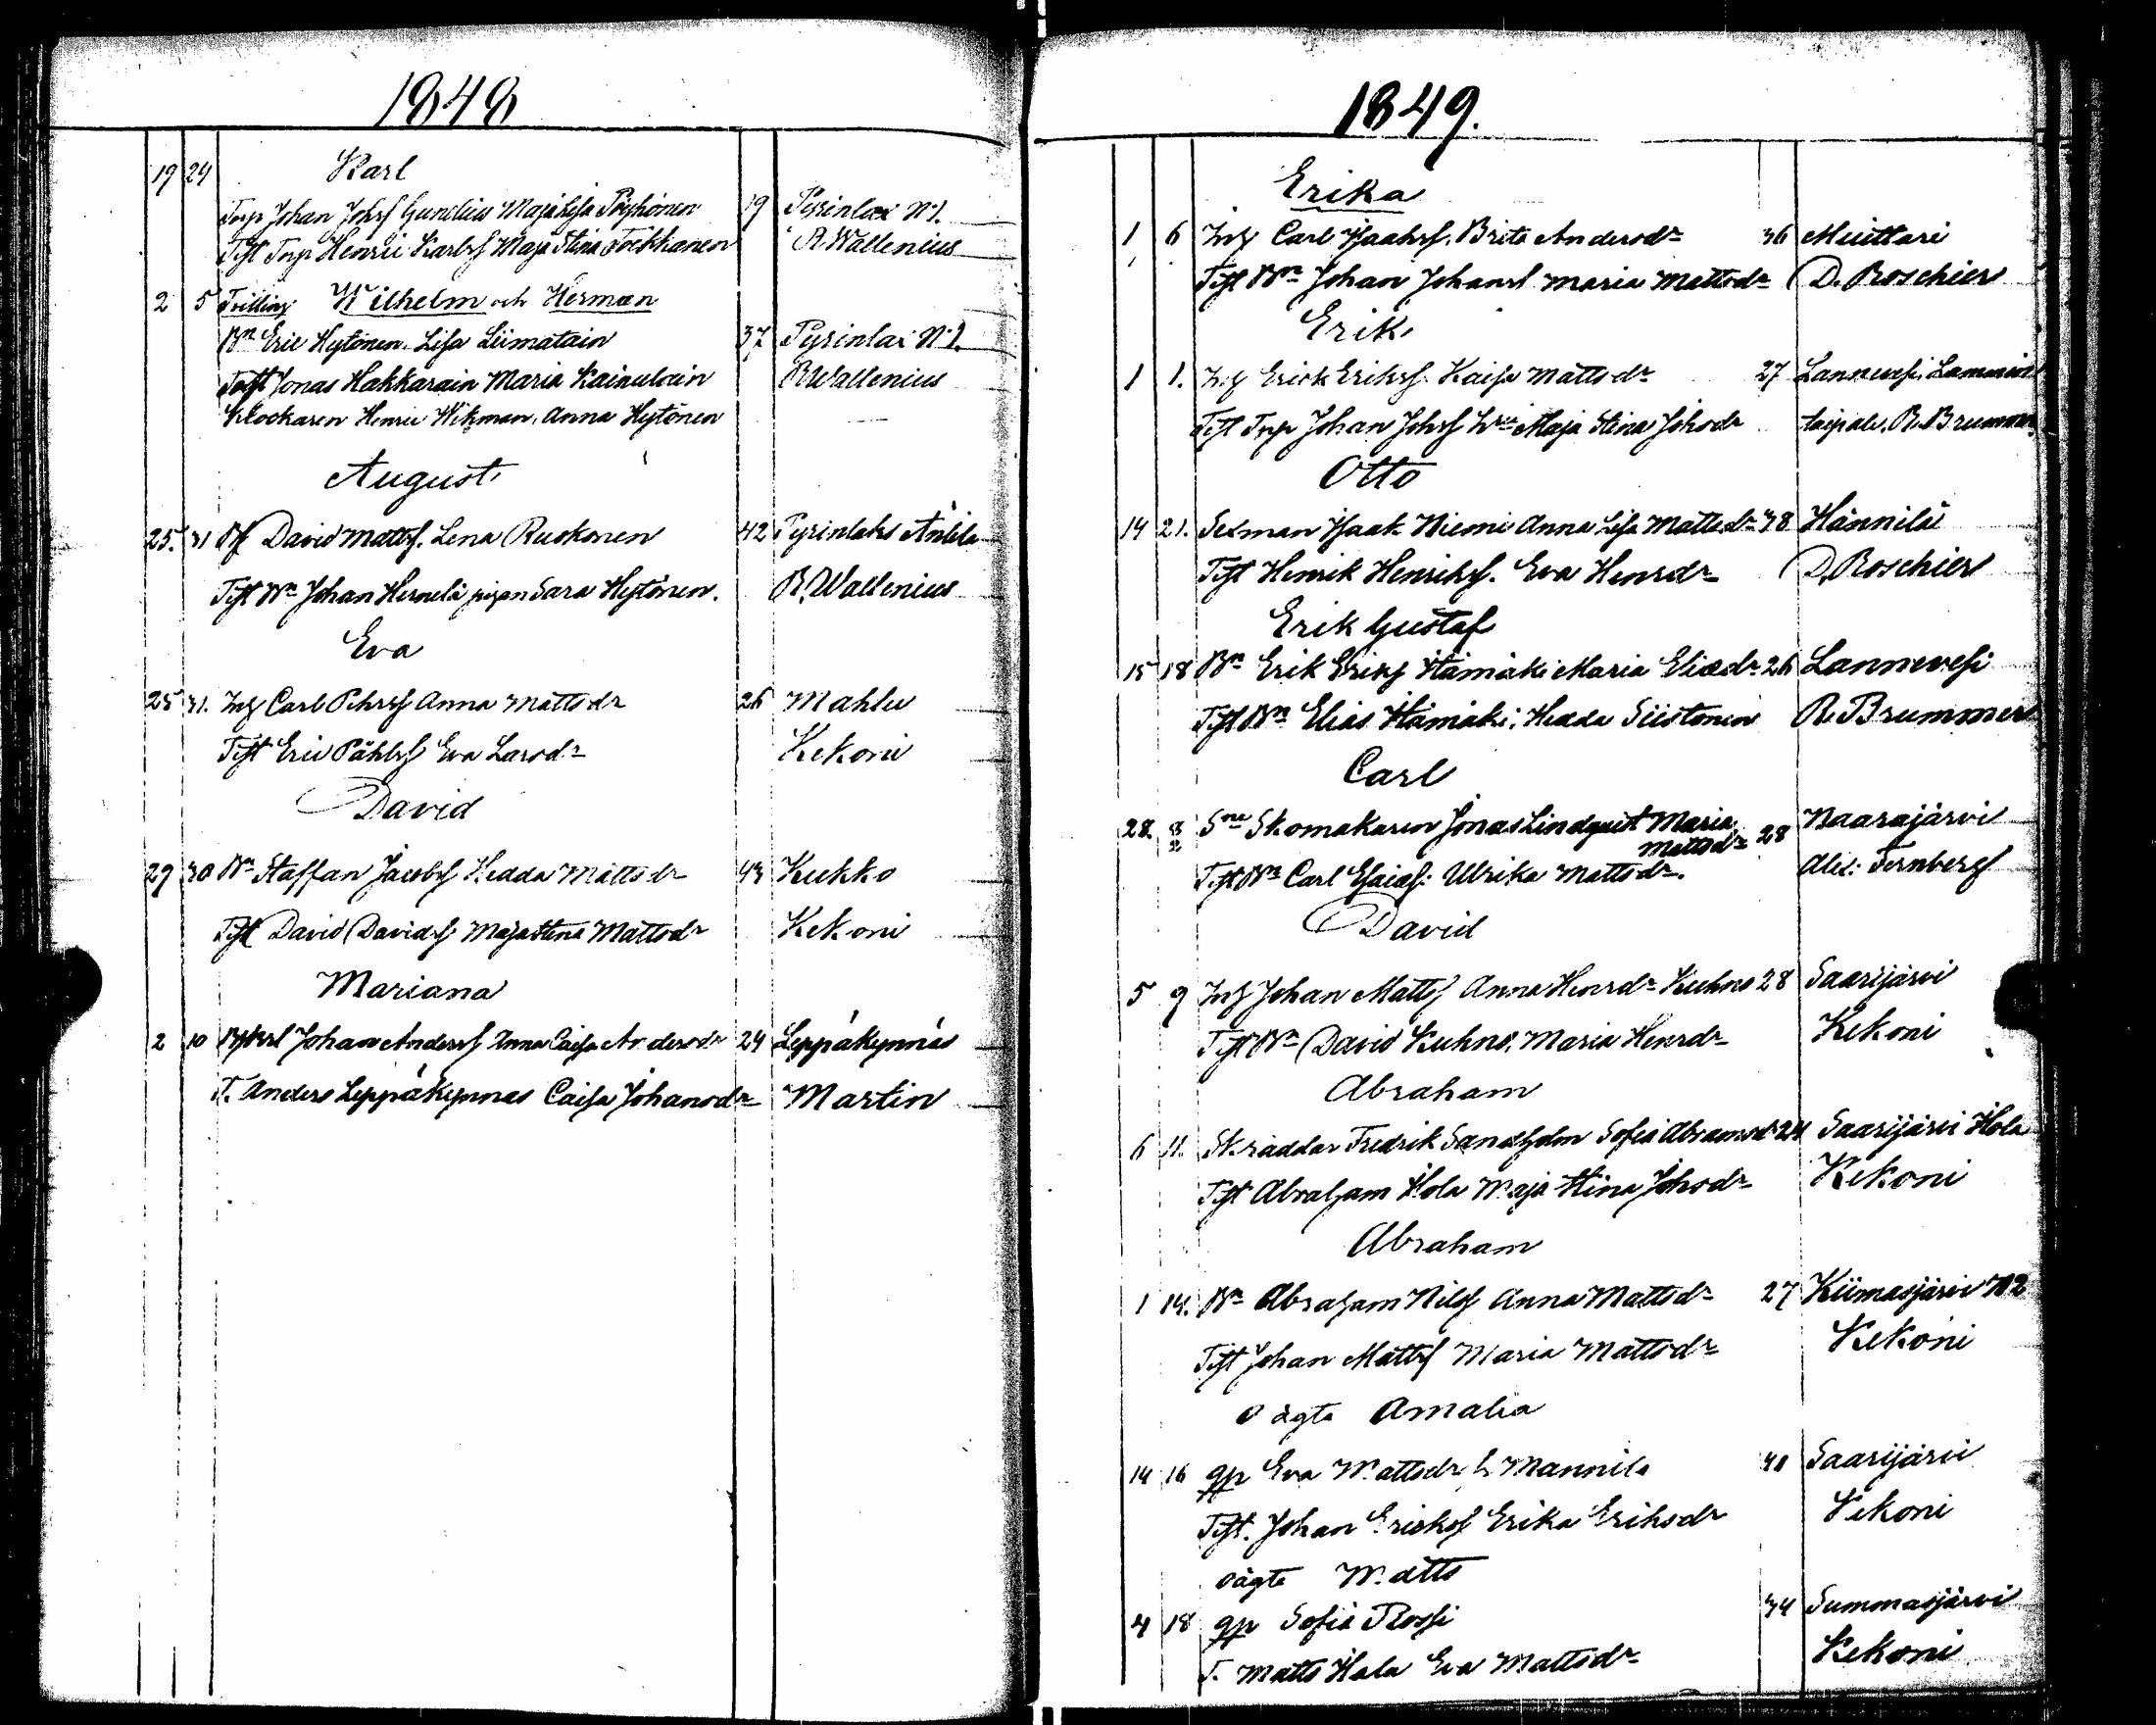 1848
19 24 Karl
Inp Johan Johsf Gundius Maja Lisa Pöyhönen 19 Pyrinlax N:1.
Tift Inp Henric Karlsf Maja Stina Tockkanen R Wallenius
2 5 Tvilling Wilhelm och Herman
Bn Eric Hytönen. Lisa Liimatain 37 Pyrinlax N:1.
Tift Jonas Hakkarain Maria Kainulain R Wallenius
Klockaren Henric Wikman, Anna Hytönen
August
25. 31 Bf David Mattsf. Lena Ruokonen 42 Pyrinlaks Anttila
Tift Bn Johan Hernelä pigan Sara Hytönen. R. Wallenius
Eva
25 31. Inh Carl Pehrsf Anna Mattsdr 26 Mahlu
Tift Eric Påhlsf Eva Larsdr Kekoni
David
29 30 Bn Staffan Jacobsf Hedda Mattsdr 43 Kukko
Tift David Davidsf Maja Stina Mattsdr Kekoni
Mariana
2 10 Johan Andersf Anna Caisa Andersdr 24 Leppäkynnäs
T. Anders Leppäkynnas Caisa Johansdr Martin
1849.
Erika
1 6 Inh Carl Isaksf. Brita Andersdr 36 Muittari
Tift Bn Johan Johansf Maria Mattsdr D. Roschier
Erik
1 1. Inh Erick Eriksf. Kaisa Mattsdr 27 Lannevesi, Lammin
Tift Inp Johan Johsf Maja Stina Johsdr taipale. R. Brummer
Otto
14 21. Sexman Isaak Niemi Anna Lisa Mattsdr 38 Hännilä
Tift Henrik Henriksf. Eva Henrsdr D. Roschier
Erik Gustaf
15 18 Bn Erik Eriksf Hämäki Maria Eliædr 26 Lannevesi
Tift Bn Elias Hämäki, Hedda Siistonen R. Brummer
Carl
28. 8/2 Sne Skomakaren Jonas Lindquist Maria Mattsdr 28 Naarajärvi
Tift Bn Carl Esaiæs: Ulrika Mattsdr. Alex: Fernberg
David
5 9 Inh Johan Mattsf Anna Henrsdr Kuhno 28 Saarijärvi
Tift Bn David Kuhno, Maria Henrsdr Kekoni
Abraham
6 11. Skräddar Fredrik Sandholm Sofia Abramsdr 24 Saarijärvi Hola
Tift Abraham Hola Maja Stina Johsdr Kekoni
Abraham
1 14. Bn Abraham Nilsf Anna Mattsdr 27 Kiimasjärvi N2
Tift Johan Mattsf Maria Mattsdr Kekoni
oägta Amalia
14 16 gp Eva Mattsdr Mannila 40 Saarijärvi
Tift. Johan Ericksf Erika Eriksdr Kekoni
oägta Matts
4 18 gp Sofia Rossi 34 Summasjärvi
T. Matts Hola Eva Mattsdr Kekoni